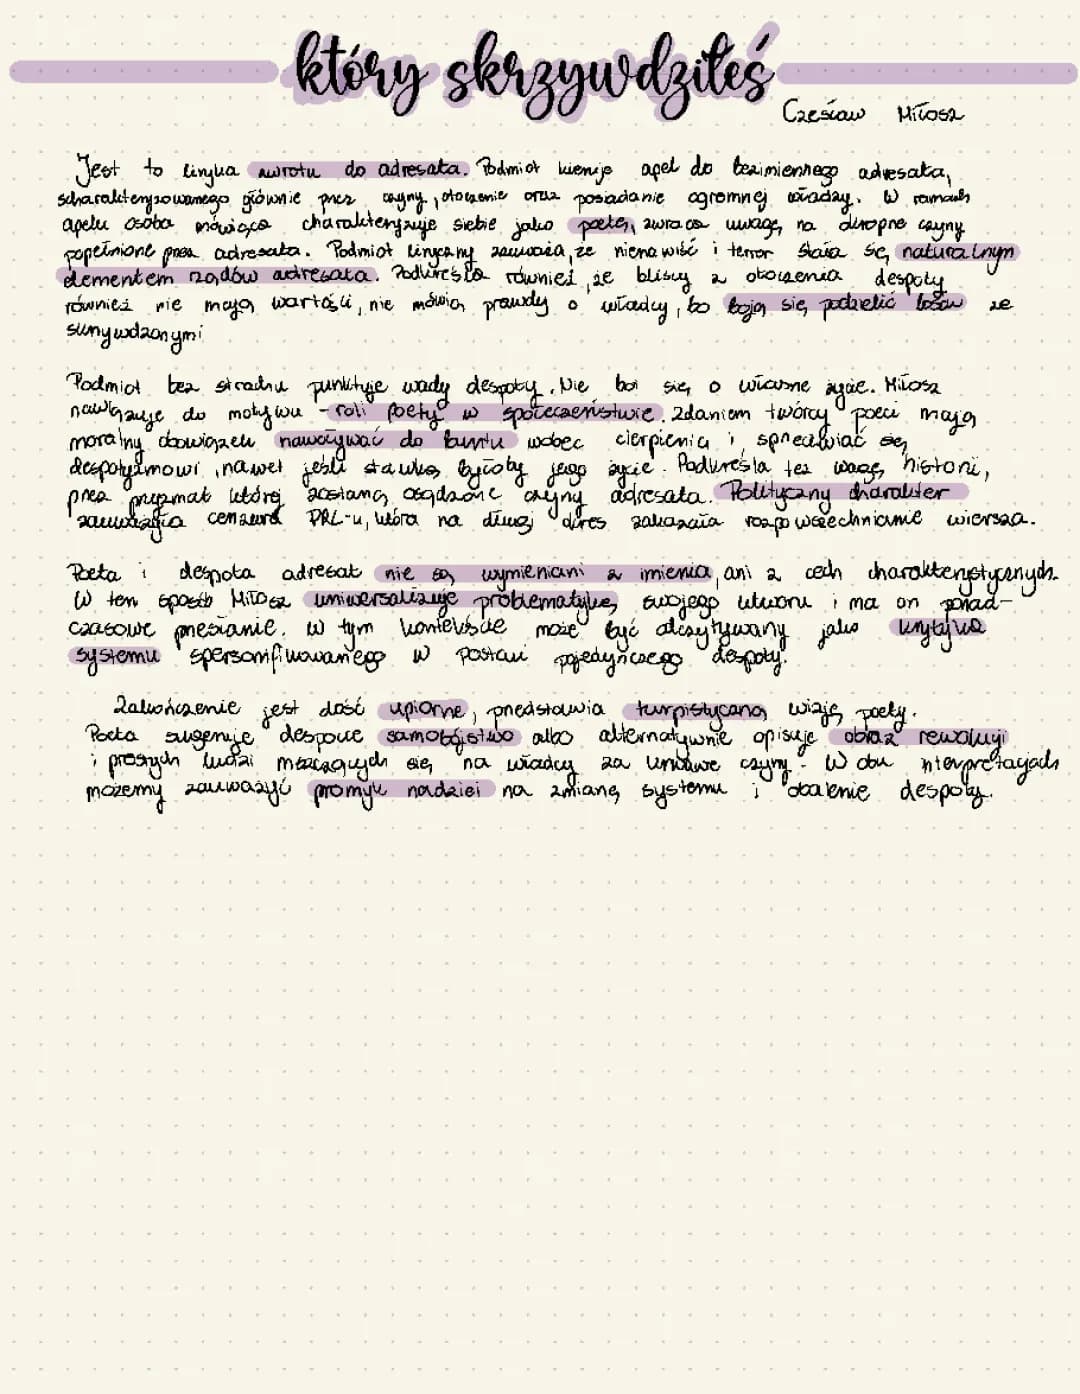 który skrzywdziłeś
Czesław Miłosz
Jest to liryka zwrotu do adresata. Podmiot kieruje apel do bezimiennego adresata,
scharakteryzowanego głównie przez czyny, otoczenie oraz posiadanie ogromnej władzy. W ramach
apelu osoba mówiąca charakteryzuje siebie jako poetę, zwraca uwagę na okropne czyny
popełnione przez adresata. Podmiot liryczny zauważa, że nienawiść i terror stała się naturalnym
elementem rządów adresata. Podkreśla również, że bliscy z otoczenia despoty
również nie mają wartości, nie mówią prawdy o władcy, bo boją się podzielić losów ze
skrzywdzonymi
Podmiot bez strachu punktuje wady despoty. Nie boi się o własne życie. Miłosz
nawiązuje do motywu - roli poety w społeczeństwie. Zdaniem twórcy poeci mają
moralny obowiązek nawoływać do buntu wobec cierpienia i sprzeciwiać się
despotyzmowi, nawet jeśli stawką byłoby jego życie. Podkreśla też wagę historii,
przez pryzmat której zostaną osądzone czyny adresata. Polityczny charakter
zauważyła cenzura PRL-u, która na długi okres zakazała rozpowszechnianie wiersza.
Poeta i despota adresat nie są wymieniani z imienia, ani z cech charakterystycznych.
W ten sposób Miłosz uniwersalizuje problematykę swojego utworu i ma on ponad-
czasowe przesłanie. W tym kontekście może być odczytywany jako krytyka
systemu spersonifikowanego w postaci pojedynczego despoty.
Zakończenie jest dość upiorne, przedstawia turpistyczną wizję poety.
Poeta sugeruje despocie samobójstwo albo alternatywnie opisuje obraz rewolucji
i prostych ludzi mszczących się na władcy za krwawe czyny. W obu interpretacjach
możemy zauważyć promyk nadziei na zmianę systemu i obalenie despoty.